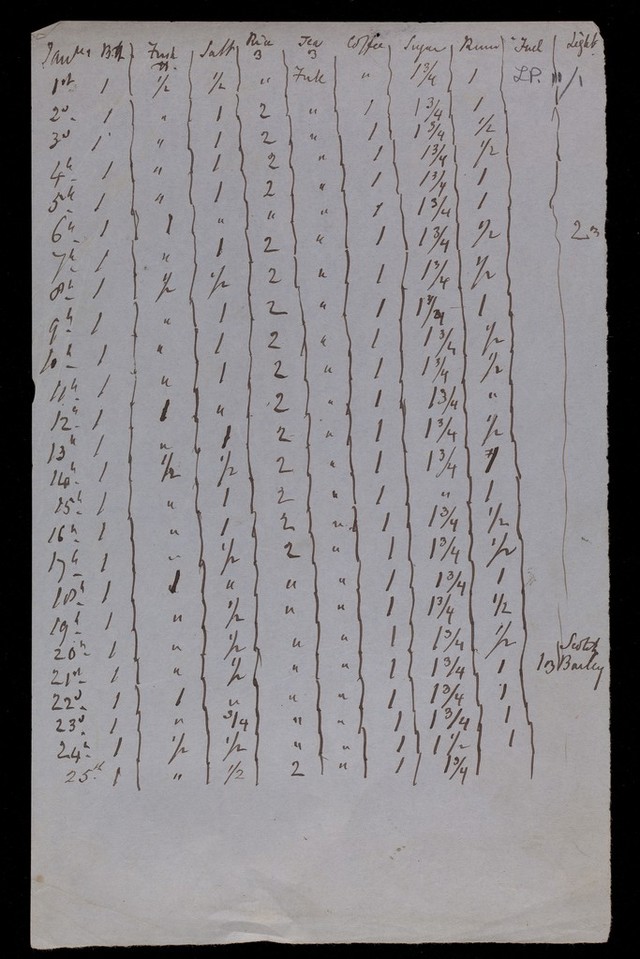 Bt Fresh Salt Rice Tea Coffee Sugar Rum Fuel Light
1st 1 1/2 1/2 " " 1 3/4 1 LP. 1
2d 1 " 1 2 " 1 1 3/4 1
3d 1 " 1 2 " 1 1 3/4 1/2
4th 1 " 1 2 " 1 1 3/4 1/2
5th 1 " 1 2 " 1 1 3/4 1
6th 1 1 " " " 1 1 3/4 1 2
7th 1 " 1 2 " 1 1 3/4 1/2
8th 1 1/2 1/2 2 " 1 1 3/4 1/2
9th 1 " 1 2 " 1 1 3/4 1
10th 1 " 1 2 " 1 1 3/4 1/2
11th 1 " 1 2 " 1 1 3/4 1/2
12th 1 1 " 2 " 1 1 3/4 "
13th 1 " 1 2 " 1 1 3/4 1/2
14th 1 1/2 1/2 2 " 1 1 3/4 1
15th 1 " 1 2 " 1 " 1
16th 1 " 1 2 " 1 1 3/4 1/2
17th 1 " 1/2 2 " 1 1 3/4 1/2
18th 1 1 " " " 1 1 3/4 1
19th 1 " 1/2 " " 1 1 3/4 1/2
20th 1 " 1/2 " " 1 1 3/4 1/2 Scotch
21st 1 " 1/2 " " 1 1 3/4 1 Barley
22d 1 1 " " " 1 1 3/4 1
23d 1 " 3/4 " " 1 1 3/4 1
24th 1 1/2 1/2 " " 1 1 1/2 1
25th 1 " 1/2 2 " 1 1 3/4